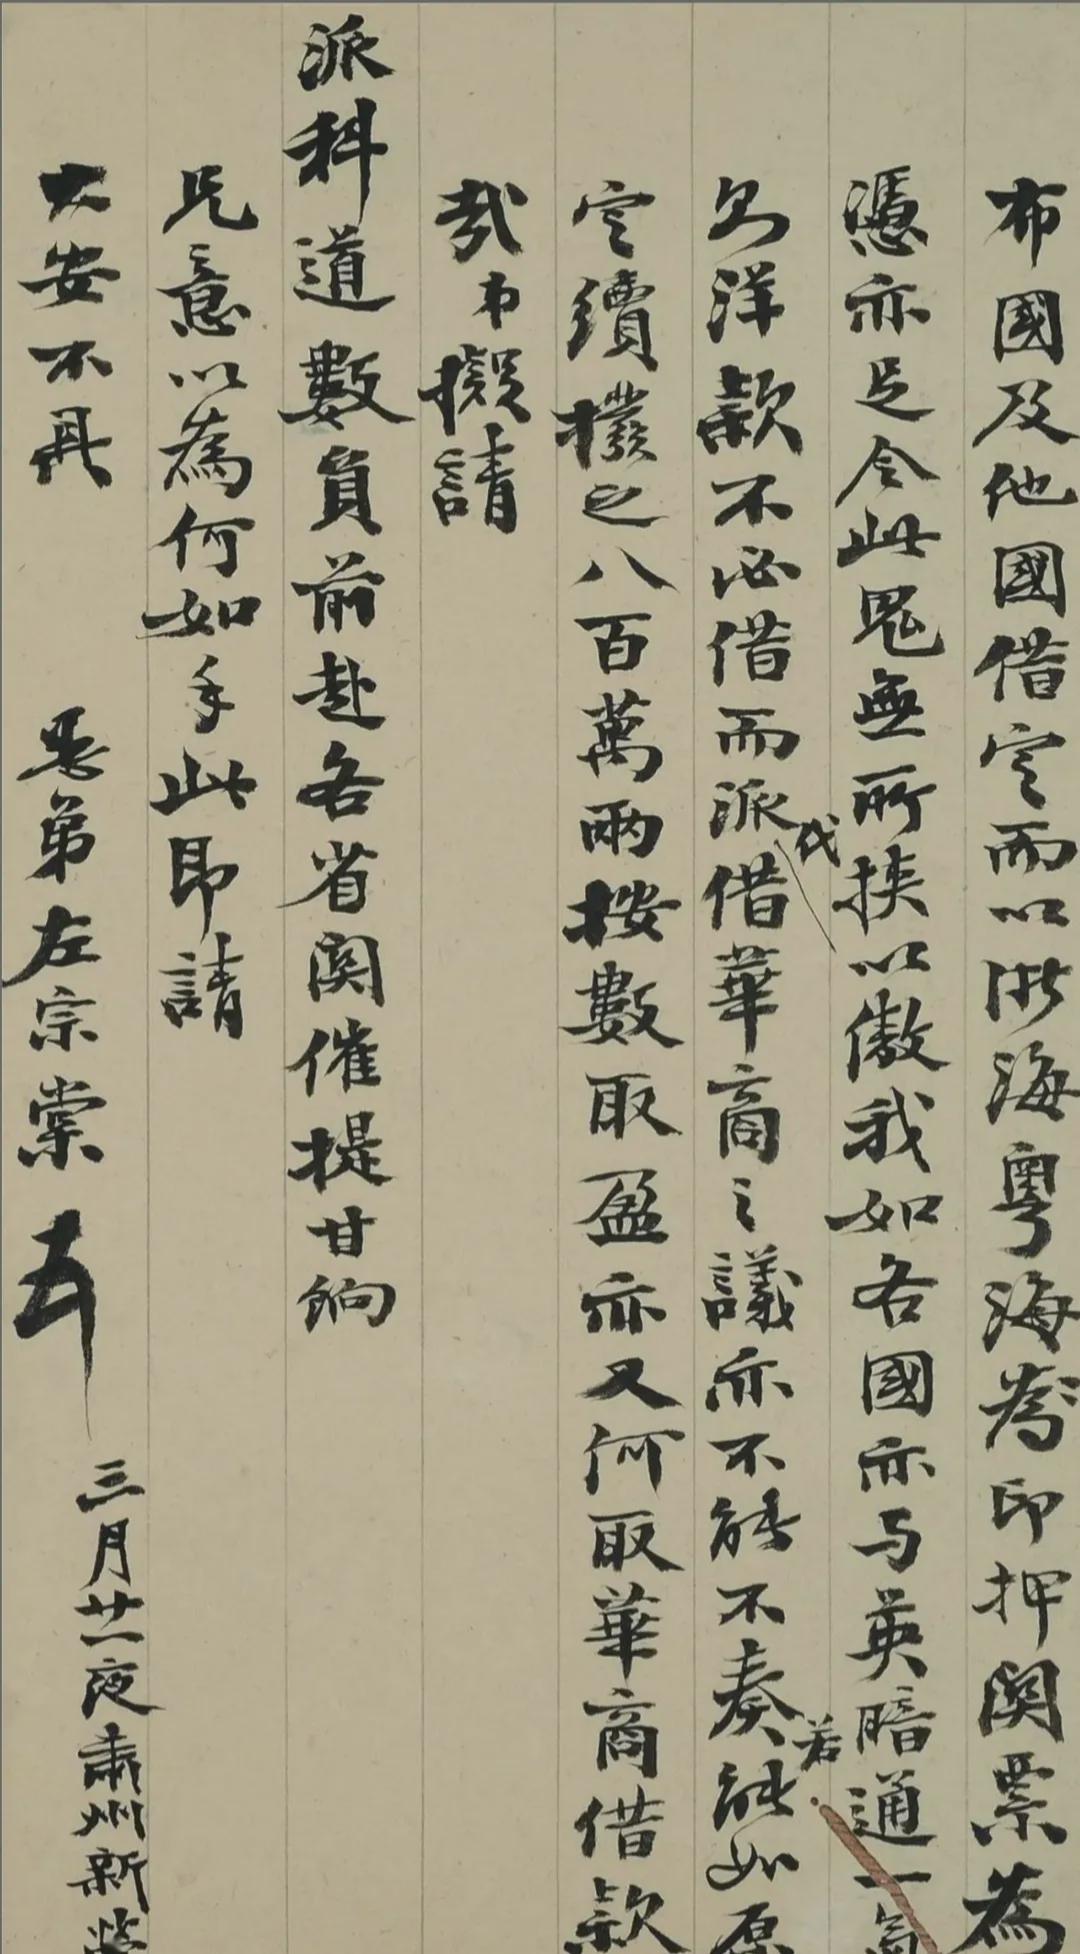 布國及他國借定而以浙海粵海為印押關票為
憑亦足令此鬼無所挾以傲我如各國亦与英暗通一氣
則洋款不必借而派伐借華商之議亦不能不奏若能如原
定續撥之八百萬兩按數取盈亦又何取華商借款
哉弟擬請
派科道數員前赴各省關催提甘餉
兄意以為何如手此即請
大安不具
愚弟左宗棠
三月廿一夜肅州新營